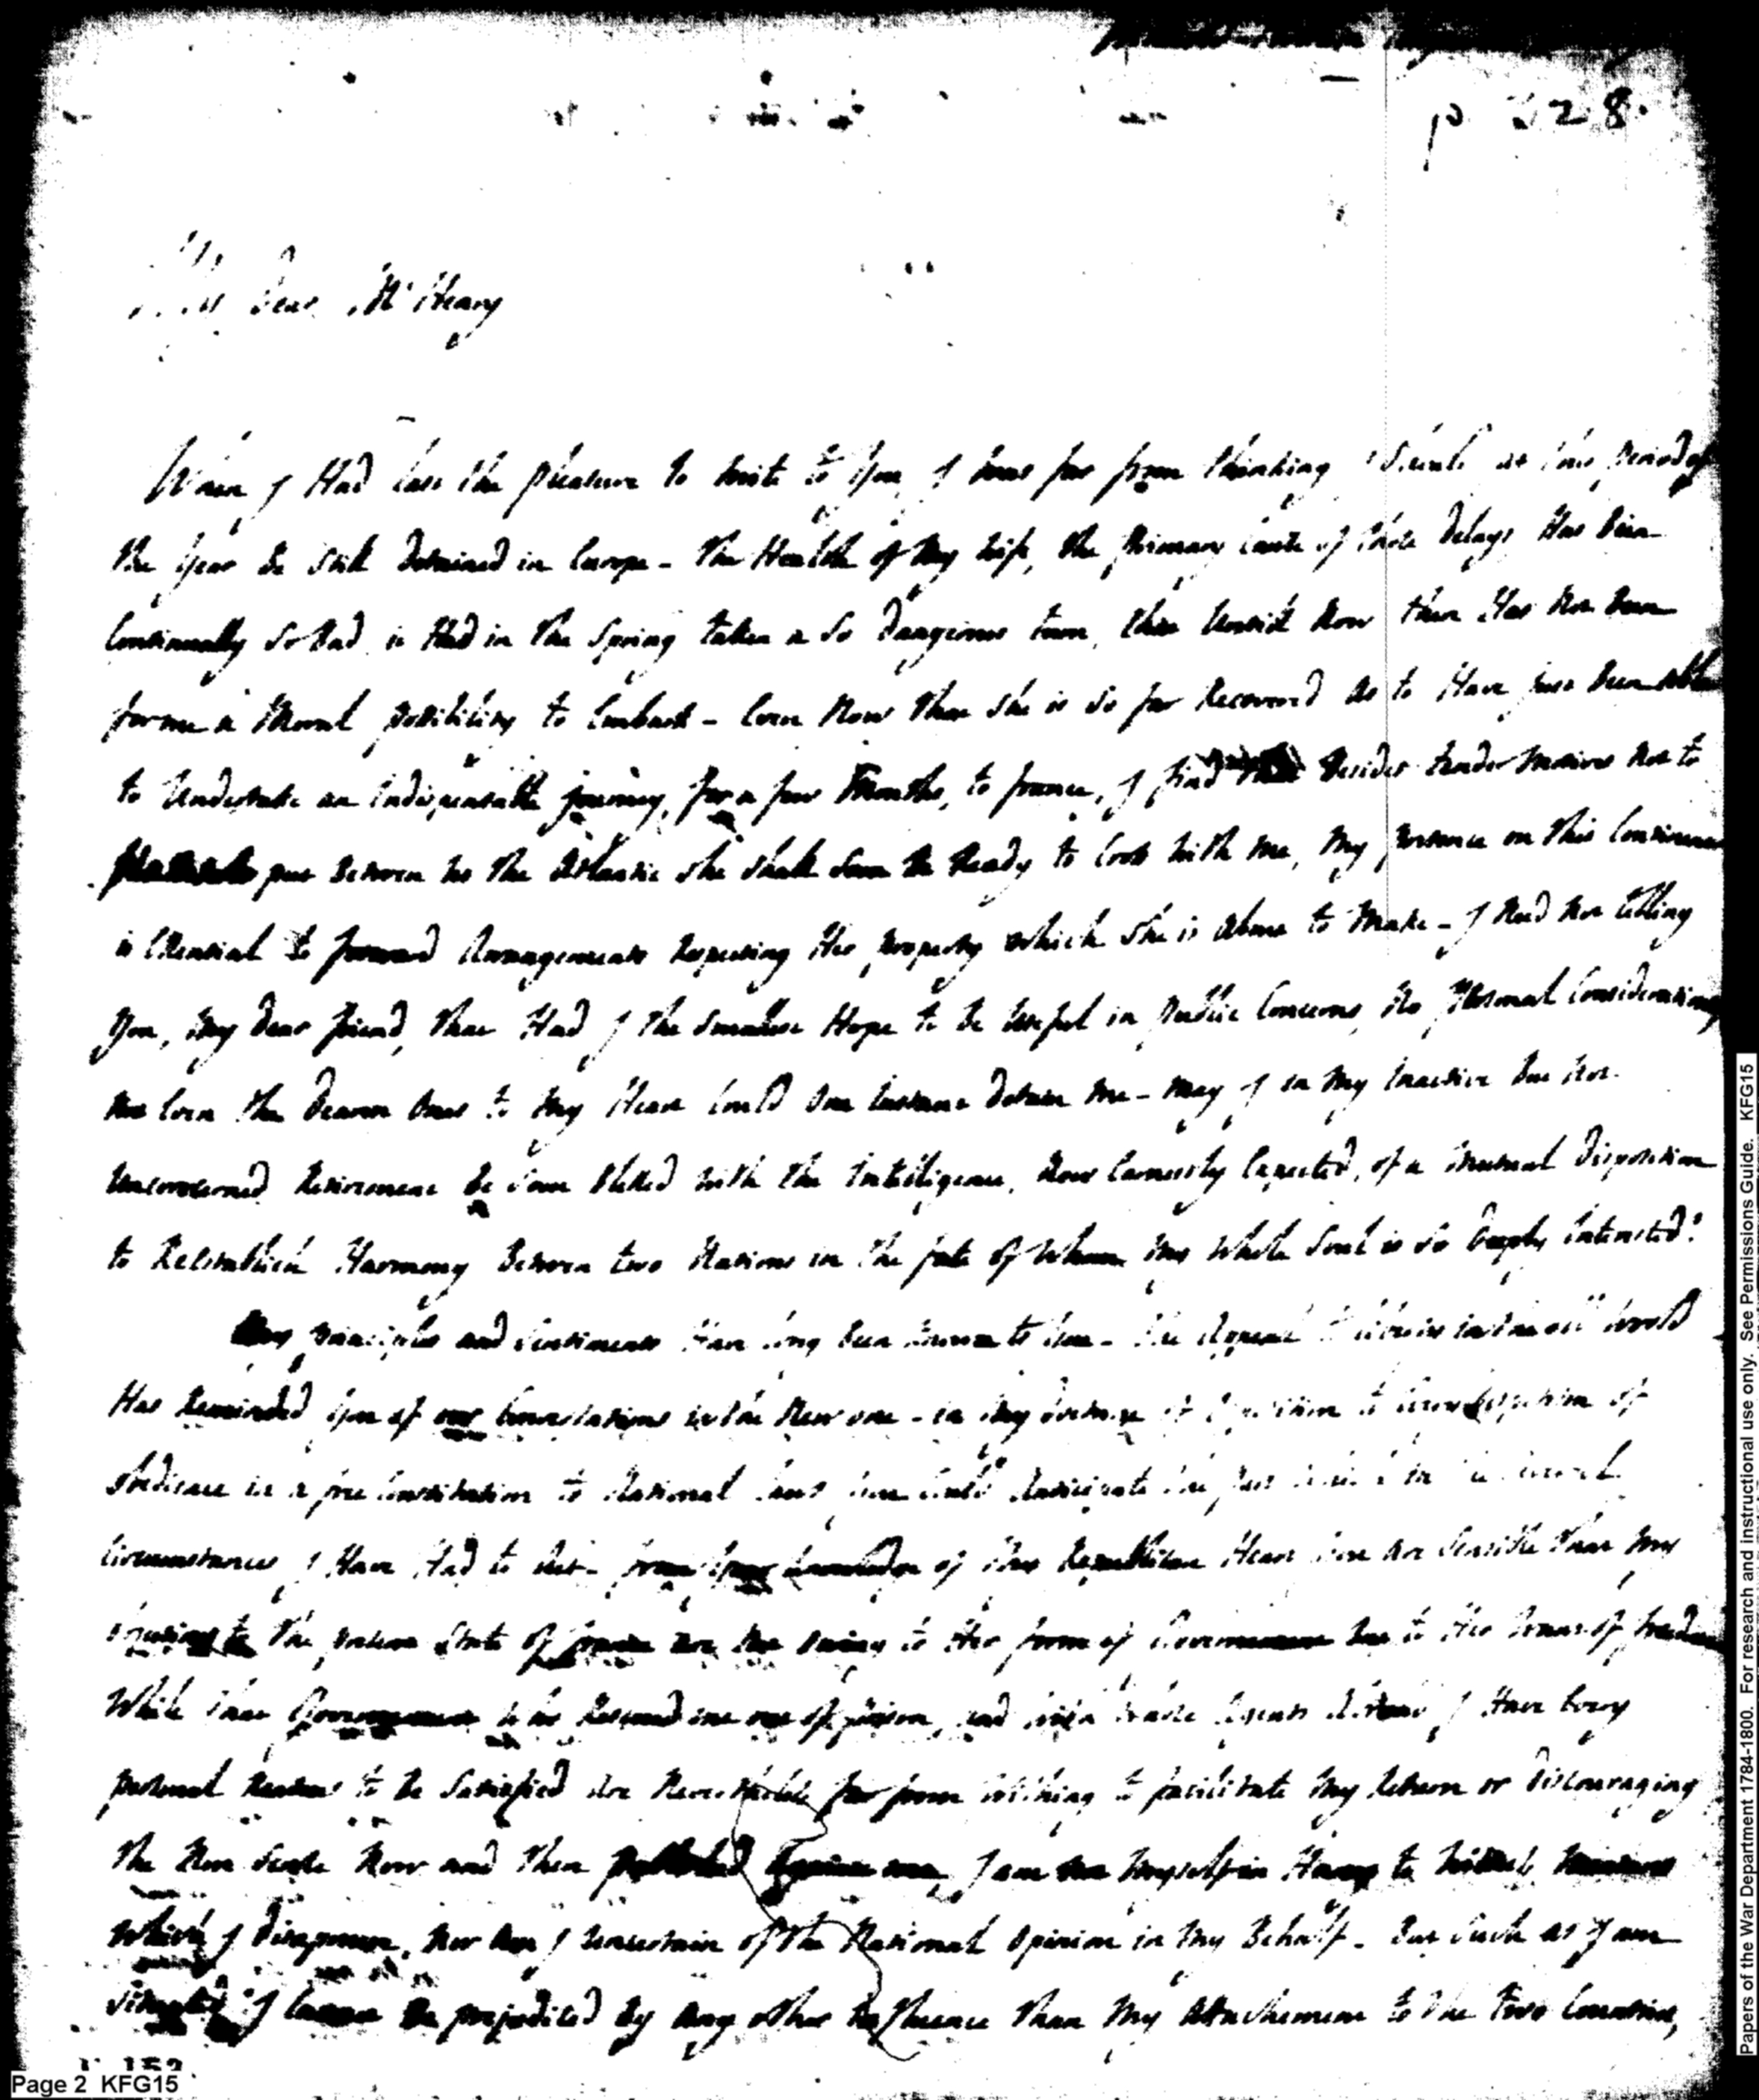 p 328.
My Dear McHenry
When I Had last the pleasure to write to You, I was far from thinking I Should at this period of
the Year be still detained in Europe – The Health of My wife, the primary cause of those delays Has been
Continually So bad, it Had in the Spring taken a So dangerous turn, that Untill Now there Has Not been
for me a Moral possibility to Embark – Even Now that she is So far Recovered as to Have just been able
to Undertake an Indispensable journey, for a few Months, to france, I find besides tender motives Not to
put between us the Atlantic she shall Soon be Ready to Cross with me, My presence on this Continent
is Essential to forward Arrangements Respecting Her property which she is About to Make – I Need Not telling
You, My dear friend, that Had I the Smallest Hope to be Usefull in public Concerns, No personal Considerations
Not Even the dearest Ones to My Heart Could One Instant detain me – May I in My Inactive but Not
Unconcerned Retirement be Soon blessed with the Intelligence, Now Earnestly Expected, of a Mutual disposition
to Reestablish Harmony between two Nations in the fate of whom My whole Soul is So deeply Interested!
My principles and Sentiments Have long been known to You – the to in the old World
Has Reminded You of our Conversations in the New one – in My of to of
obedience in a free Constitution to National laws You Could Anticipate the
Circumstances I Have Had to Act – from Your knowledge of My Republican Heart You Are Sensible that My
objections to the present State of france are Not owing to Her form of Government but to Her Want of freedom
While that Government who Rescued me out of prison, and with whose Agents Abroad I Have Every
personal Reason to be Satisfied Are Nevertheless far from wishing to facilitate My Return or discouraging
the Non Sense Now and then published Against me, I am Not Myself in Haste to
which I disapprove, Nor Am I Uncertain of the National Opinion in My Behalf – but Such as I am
Situated I Cannot Be prejudiced by Any other Influence than My Attachement to the two Countries,
Page 2 KFG15
Papers of the War Department 1784-1800. For research and instructional use only. See Permissions Guide. KFG15